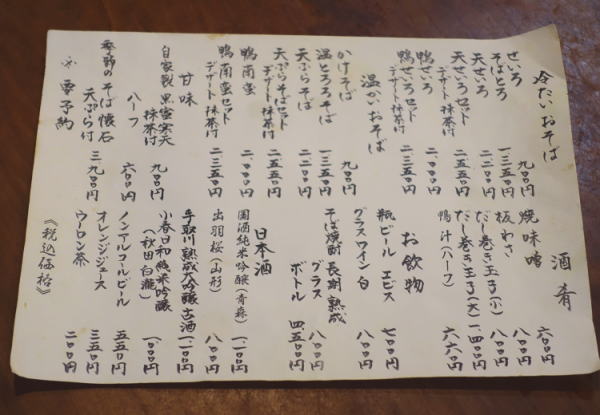 冷たいおそば
せいろ 九〇〇円
そばとろ 一、三五〇円
天せいろ 二、二〇〇円
天せいろセット 二、五五〇円
デザート抹茶付
鴨せいろ 二、〇〇〇円
鴨せいろセット 二、三五〇円
デザート抹茶付
温かいおそば
かけそば 九〇〇円
温とろろそば 一、三五〇円
天ぷらそば 二、二〇〇円
天ぷらそばセット 二、五五〇円
デザート抹茶付
鴨南蛮 二、〇〇〇円
鴨南蛮セット 二、三五〇円
デザート抹茶付
甘味
自家製黒蜜寒天 九〇〇円
抹茶付
ハーフ 六〇〇円
季節のそば懐石 三、九〇〇円
天ぷら付
※要予約
酒肴
焼味噌 六〇〇円
板わさ 八〇〇円
だし巻き玉子(小) 八〇〇円
だし巻き玉子(大) 一、四〇〇円
鴨汁(ハーフ) 六六〇円
お飲物
瓶ビール ヱビス 七〇〇円
グラスワイン白 八〇〇円
そば焼酎 長期熟成
グラス 八〇〇円
ボトル 四、五〇〇円
日本酒
国酒純米吟醸(青森) 一、二〇〇円
出羽桜(山形) 八〇〇円
手取川熟成大吟醸古酒 一、二〇〇円
小春日和純米吟醸 一、〇〇〇円
(秋田白瀧)
ノンアルコールビール 五五〇円
オレンジジュース 三五〇円
ウーロン茶 二〇〇円
《税込価格》